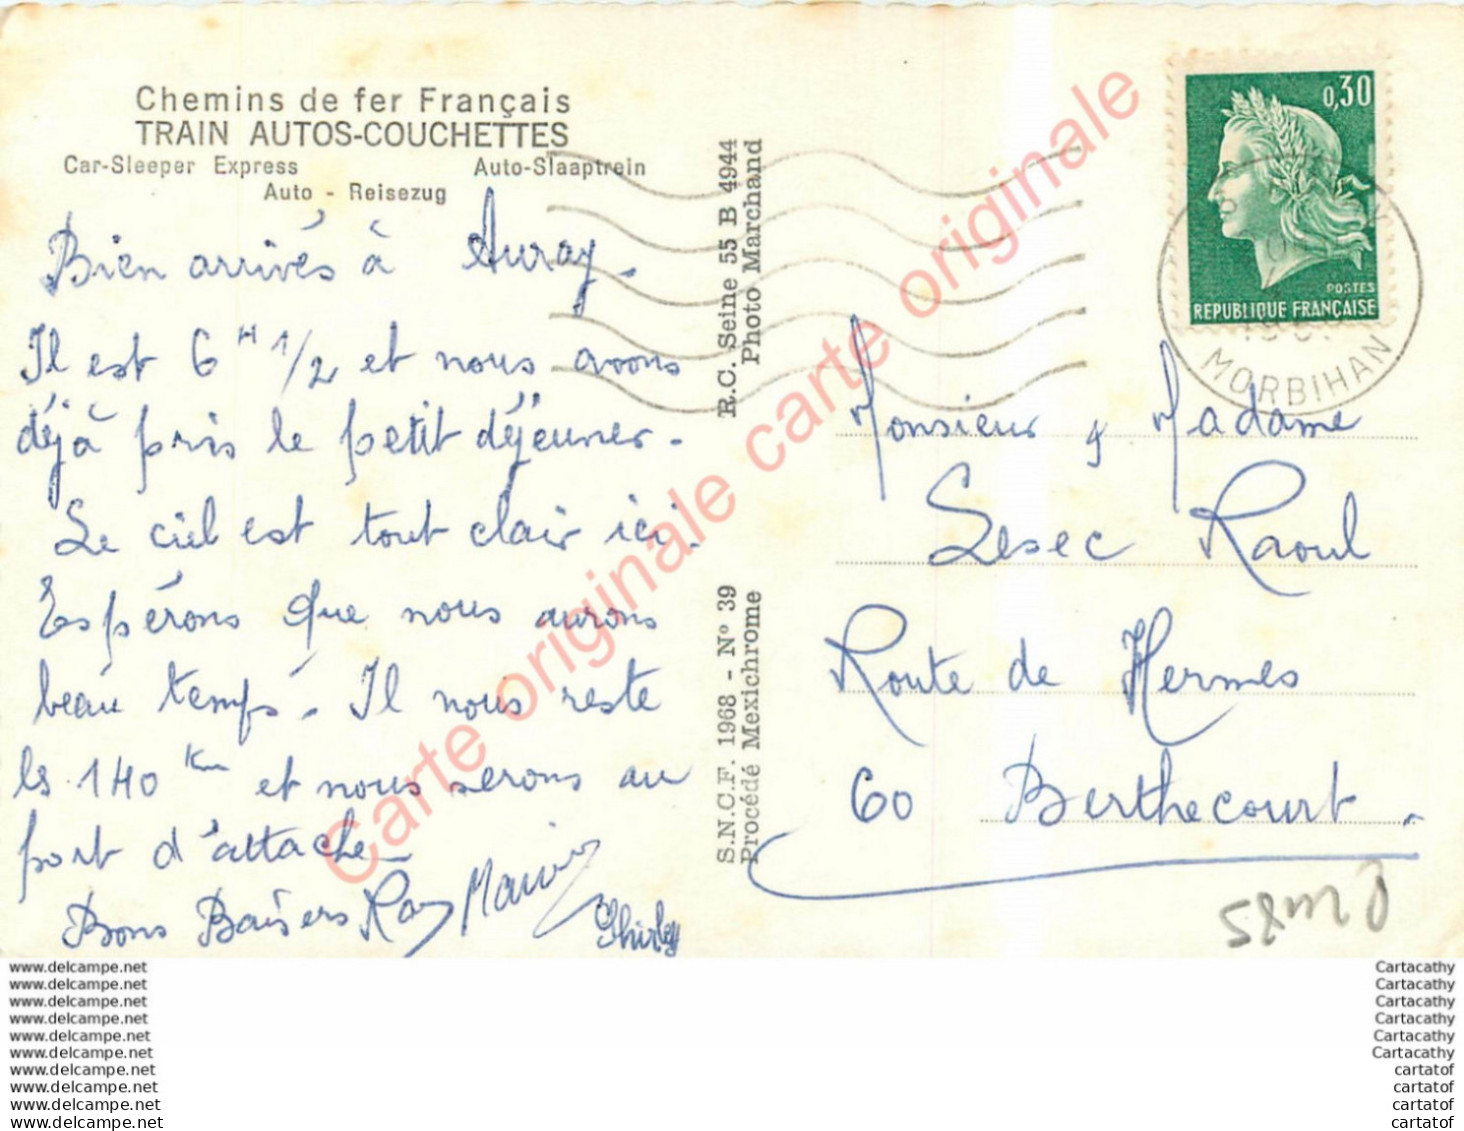 Chemins de fer Français
TRAIN AUTOS-COUCHETTES
Car-Sleeper Express Auto-Slaaptrein
Auto - Reisezug
Bien arrivés à Auray.
Il est 6 H 1/2 et nous avons
déjà pris le petit déjeuner.
Le ciel est tout clair ici.
Espérons que nous aurons
beau temps. Il nous reste
les 140 Km et nous serons au
port d'attache
Bons Baisers Ray
Shirley
R.C. Seine 55 B 4944
Photo Marchand
S.N.C.F. 1968 - N° 39
Procédé Mexichrome
0,30
POSTES
REPUBLIQUE FRANÇAISE
MORBIHAN
Monsieur & Madame
Lesec Raoul
Route de Hermes
60 Berthecourt.
Carte originale carte originale
www.delcampe.net
www.delcampe.net
www.delcampe.net
www.delcampe.net
www.delcampe.net
www.delcampe.net
www.delcampe.net
www.delcampe.net
www.delcampe.net
www.delcampe.net
Cartacathy
Cartacathy
Cartacathy
Cartacathy
Cartacathy
Cartacathy
cartatof
cartatof
cartatof
cartatof